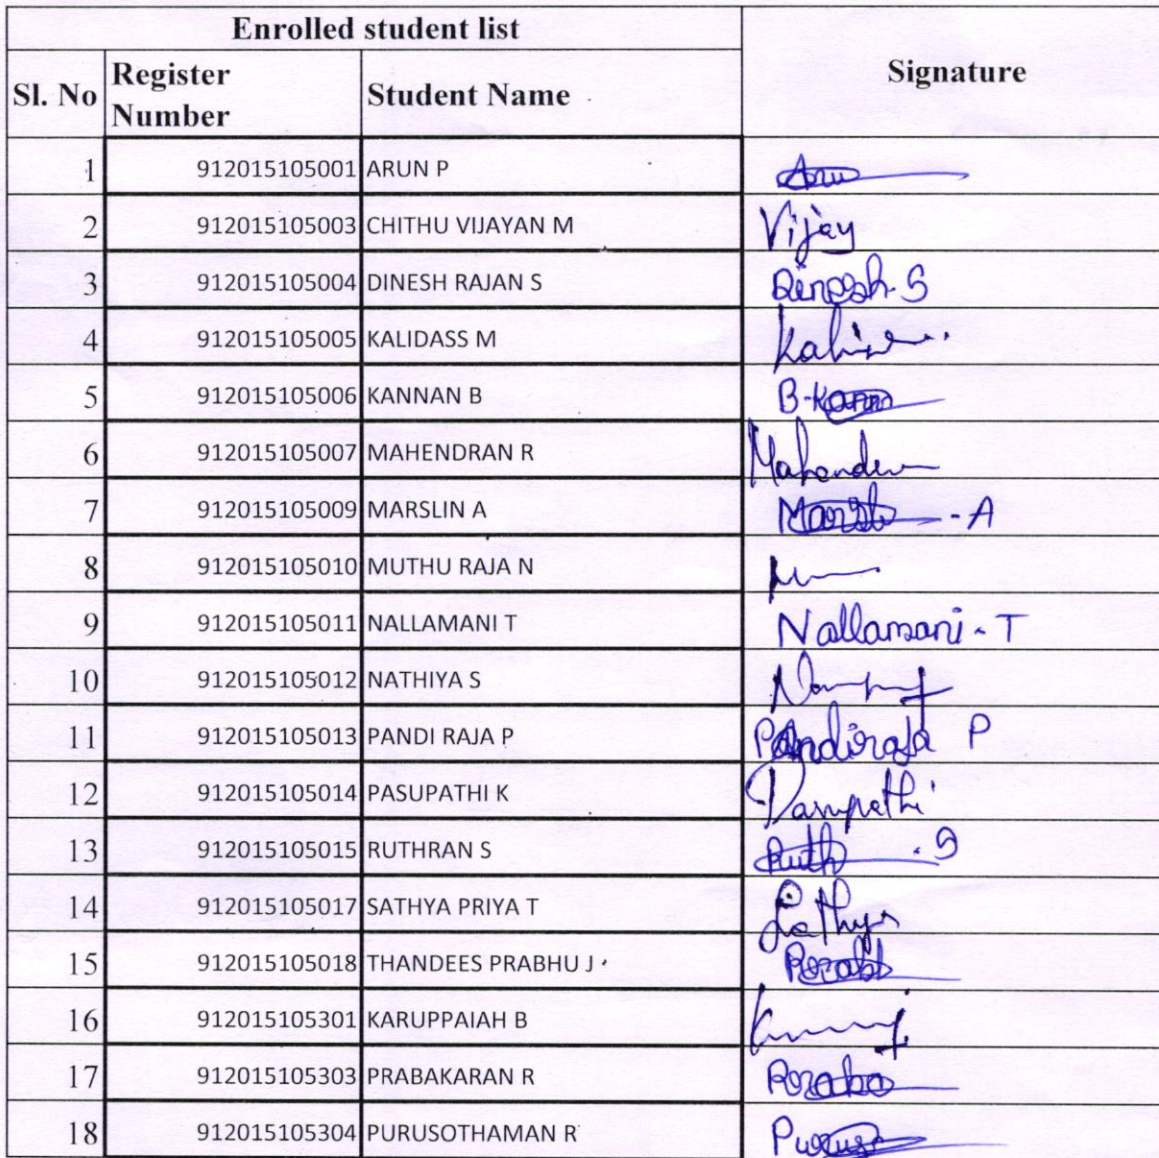 Enrolled student list
Sl. No Register Number Student Name Signature
1 912015105001 ARUN P Arun
2 912015105003 CHITHU VIJAYAN M Vijay
3 912015105004 DINESH RAJAN S Dinesh.S
4 912015105005 KALIDASS M
5 912015105006 KANNAN B B-Kann
6 912015105007 MAHENDRAN R Mahendra
7 912015105009 MARSLIN A
8 912015105010 MUTHU RAJA N
9 912015105011 NALLAMANI T Nallamani-T
10 912015105012 NATHIYA S
11 912015105013 PANDI RAJA P Pandiraja P
12 912015105014 PASUPATHI K Pasupathi
13 912015105015 RUTHRAN S Ruth .S
14 912015105017 SATHYA PRIYA T Sathya
15 912015105018 THANDEES PRABHU J
16 912015105301 KARUPPAIAH B
17 912015105303 PRABAKARAN R
18 912015105304 PURUSOTHAMAN R